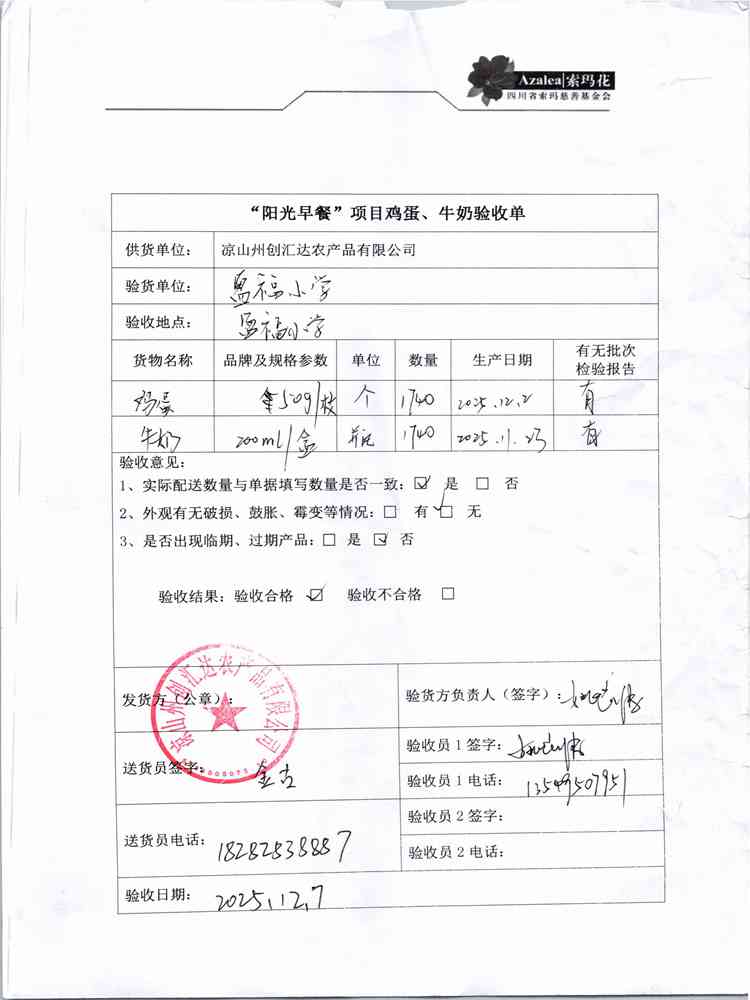 Azalea|索玛花
四川省索玛慈善基金会
“阳光早餐”项目鸡蛋、牛奶验收单
供货单位： 凉山州创汇达农产品有限公司
验货单位： 福小学
验收地点： 福小学
货物名称 品牌及规格参数 单位 数量 生产日期 有无批次检验报告
鸡蛋 50g/枚 个 1740 2025.12.2 有
牛奶 200ml/盒 瓶 1740 2025.11.23 有
验收意见：
1、实际配送数量与单据填写数量是否一致：☑ 是 □ 否
2、外观有无破损、鼓胀、霉变等情况：□ 有 ☑ 无
3、是否出现临期、过期产品：□ 是 ☑ 否
验收结果：验收合格 ☑ 验收不合格 □
发货方（公章）：
凉山州创汇达农产品有限公司
验货方负责人（签字）：
送货员签字： 金古
验收员 1 签字：
验收员 1 电话： 13549507951
送货员电话： 18282538887
验收员 2 签字：
验收员 2 电话：
验收日期： 2025.12.7